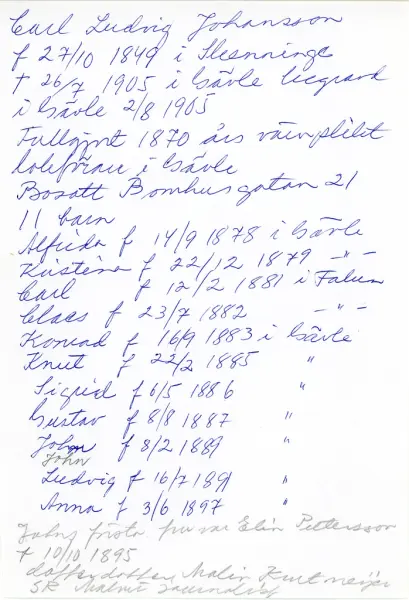 Carl Ludvig Johansson
f 27/10 1849 i Skänninge
† 26/7 1905 i Gävle begravd
i Gävle 2/8 1905
Fullgjort 1870 års värnplikt
i Gävle
Bosatt Bomhusgatan 21
11 barn
Alfrida f 14/9 1878 i Gävle
Kristina f 22/12 1879 -"-
Carl f 12/2 1881 i Falun
Claes f 23/7 1882 -"-
Konrad f 16/9 1883 i Gävle
Knut f 22/2 1885 "
Sigrid f 6/5 1886 "
Gustav f 8/8 1887 "
John f 8/2 1889 "
John
Ludvig f 16/7 1891 "
Anna f 3/6 1897 "
Johns första fru var Elin Pettersson
† 10/10 1895
dotterdotter Malin